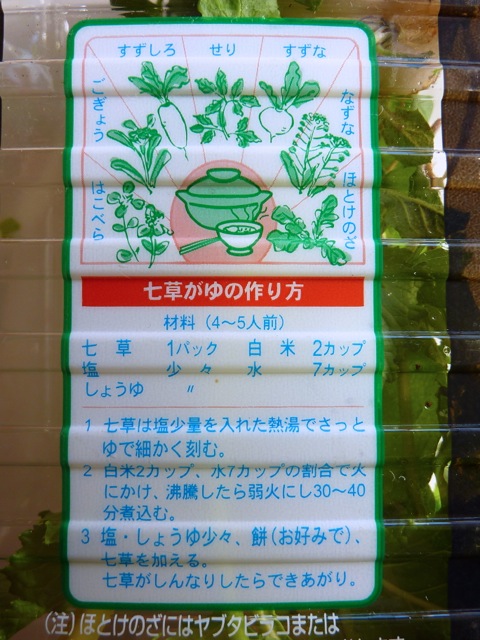 すずしろ せり すずな
ごぎょう
なずな
はこべら
ほとけのざ
七草がゆの作り方
材料（4〜5人前）
七草 1パック 白米 2カップ
塩 少々 水 7カップ
しょうゆ 〃
1 七草は塩少量を入れた熱湯でさっと
ゆで細かく刻む。
2 白米2カップ、水7カップの割合で火
にかけ、沸騰したら弱火にし30〜40
分煮込む。
3 塩・しょうゆ少々、餅（お好みで）、
七草を加える。
七草がしんなりしたらできあがり。
（注）ほとけのざにはヤブタビラコまたは